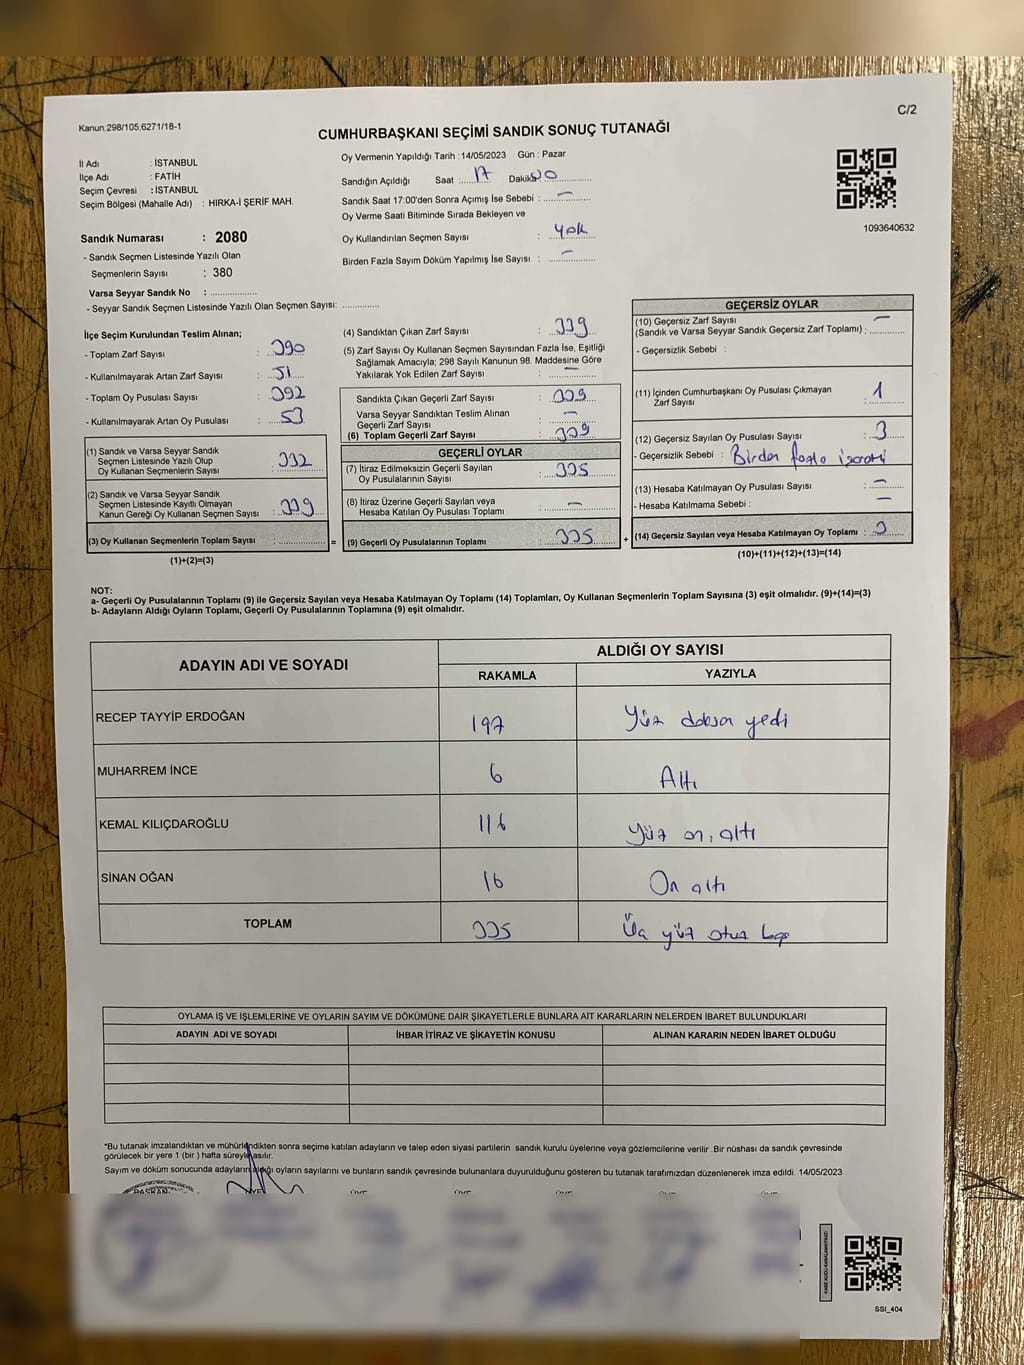 C/2
Kanun:298/105;6271/18-1
CUMHURBAŞKANI SEÇİMİ SANDIK SONUÇ TUTANAĞI
İl Adı : İSTANBUL
İlçe Adı : FATİH
Seçim Çevresi : İSTANBUL
Seçim Bölgesi (Mahalle Adı) : HIRKA-İ ŞERİF MAH.
Sandık Numarası : 2080
- Sandık Seçmen Listesinde Yazılı Olan
Seçmenlerin Sayısı : 380
Varsa Seyyar Sandık No : ..................
- Seyyar Sandık Seçmen Listesinde Yazılı Olan Seçmen Sayısı: .............
Oy Vermenin Yapıldığı Tarih : 14/05/2023 Gün : Pazar
Sandığın Açıldığı Saat : 17 Dakika
Sandık Saat 17:00'den Sonra Açımış İse Sebebi : –
Oy Verme Saati Bitiminde Sırada Bekleyen ve
Oy Kullandırılan Seçmen Sayısı : yok
Birden Fazla Sayım Döküm Yapılmış İse Sayısı : –
1093640632
İlçe Seçim Kurulundan Teslim Alınan;
- Toplam Zarf Sayısı : 390
- Kullanılmayarak Artan Zarf Sayısı : 51
- Toplam Oy Pusulası Sayısı : 392
- Kullanılmayarak Artan Oy Pusulası : 53
(1) Sandık ve Varsa Seyyar Sandık
Seçmen Listesinde Yazılı Olup
Oy Kullanan Seçmenlerin Sayısı : 332
(2) Sandık ve Varsa Seyyar Sandık
Seçmen Listesinde Kayıtlı Olmayan
Kanun Gereği Oy Kullanan Seçmen Sayısı : 339
(3) Oy Kullanan Seçmenlerin Toplam Sayısı : .............. =
(1)+(2)=(3)
(4) Sandıktan Çıkan Zarf Sayısı : 339
(5) Zarf Sayısı Oy Kullanan Seçmen Sayısından Fazla İse, Eşitliği
Sağlamak Amacıyla; 298 Sayılı Kanunun 98. Maddesine Göre
Yakılarak Yok Edilen Zarf Sayısı : –
Sandıkta Çıkan Geçerli Zarf Sayısı : 339
Varsa Seyyar Sandıktan Teslim Alınan
Geçerli Zarf Sayısı : –
(6) Toplam Geçerli Zarf Sayısı : 339
GEÇERLİ OYLAR
(7) İtiraz Edilmeksizin Geçerli Sayılan
Oy Pusulalarının Sayısı : 335
(8) İtiraz Üzerine Geçerli Sayılan veya
Hesaba Katılan Oy Pusulası Toplamı : –
(9) Geçerli Oy Pusulalarının Toplamı : 335 +
GEÇERSİZ OYLAR
(10) Geçersiz Zarf Sayısı –
(Sandık ve Varsa Seyyar Sandık Geçersiz Zarf Toplamı) : ............
- Geçersizlik Sebebi :
(11) İçinden Cumhurbaşkanı Oy Pusulası Çıkmayan
Zarf Sayısı : 1
(12) Geçersiz Sayılan Oy Pusulası Sayısı : 3
- Geçersizlik Sebebi : Birden fazla
(13) Hesaba Katılmayan Oy Pusulası Sayısı : –
- Hesaba Katılmama Sebebi : –
(14) Geçersiz Sayılan veya Hesaba Katılmayan Oy Toplamı :
(10)+(11)+(12)+(13)=(14)
NOT:
a- Geçerli Oy Pusulalarının Toplamı (9) ile Geçersiz Sayılan veya Hesaba Katılmayan Oy Toplamı (14) Toplamları, Oy Kullanan Seçmenlerin Toplam Sayısına (3) eşit olmalıdır. (9)+(14)=(3)
b- Adayların Aldığı Oyların Toplamı, Geçerli Oy Pusulalarının Toplamına (9) eşit olmalıdır.
ADAYIN ADI VE SOYADI ALDIĞI OY SAYISI
RAKAMLA YAZIYLA
RECEP TAYYİP ERDOĞAN 197 Yüz doksan yedi
MUHARREM İNCE 6 Altı
KEMAL KILIÇDAROĞLU 116 Yüz on altı
SİNAN OĞAN 16 On altı
TOPLAM 335 Üç yüz otuz beş
OYLAMA İŞ VE İŞLEMLERİNE VE OYLARIN SAYIM VE DÖKÜMÜNE DAİR ŞİKAYETLERLE BUNLARA AİT KARARLARIN NELERDEN İBARET BULUNDUKLARI
ADAYIN ADI VE SOYADI İHBAR İTİRAZ VE ŞİKAYETİN KONUSU ALINAN KARARIN NEDEN İBARET OLDUĞU
*Bu tutanak imzalandıktan ve mühürlendikten sonra seçime katılan adayların ve talep eden siyasi partilerin sandık kurulu üyelerine veya gözlemcilerine verilir. Bir nüshası da sandık çevresinde
görülecek bir yere 1 (bir ) hafta süreyle asılır.
Sayım ve döküm sonucunda adayların aldığı oyların sayılarını ve bunların sandık çevresinde bulunanlara duyurulduğunu gösteren bu tutanak tarafımızdan düzenlenerek imza edildi. 14/05/2023
BAŞKAN ÜYE ÜYE ÜYE ÜYE ÜYE ÜYE
SSI_404